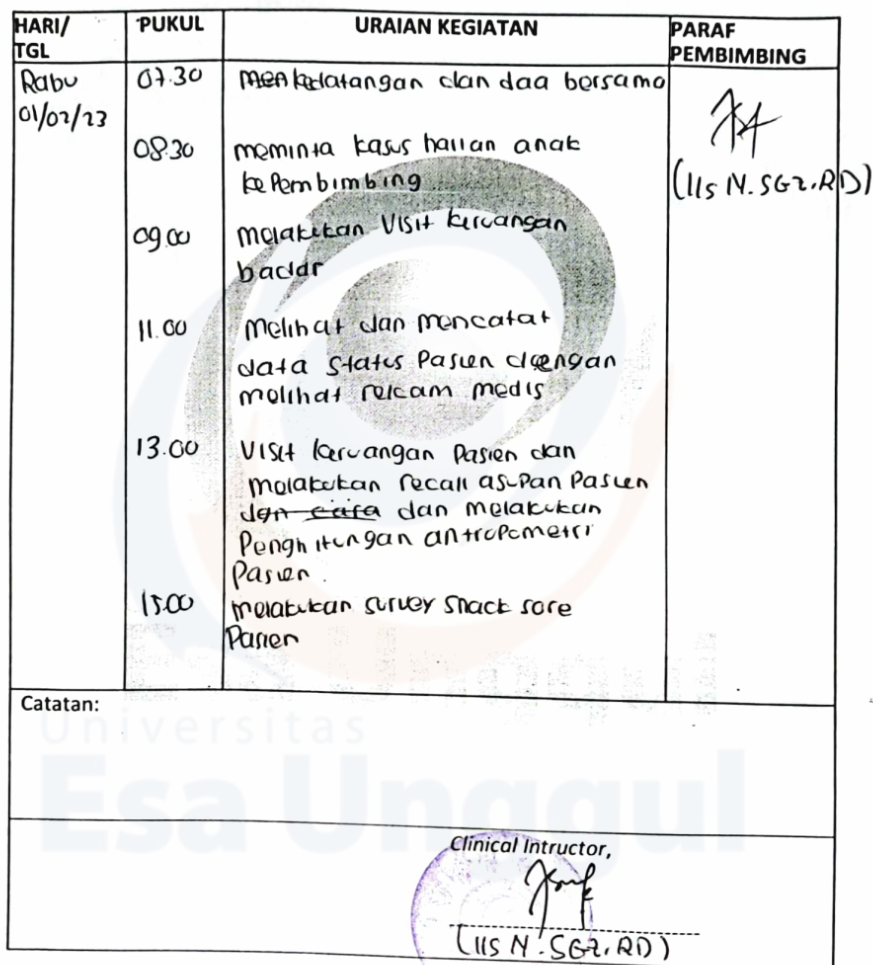 HARI/ TGL
PUKUL
URAIAN KEGIATAN
PARAF PEMBIMBING
Rabu
01/02/23
07.30
kedatangan dan doa bersama
08.30
meminta kasus harian anak
ke Pembimbing
09.00
Melakukan Visit keruangan
badar
11.00
Melihat dan mencatat
data Status Pasien dengan
melihat rekam medis
13.00
Visit keruangan Pasien dan
melakukan recall asupan Pasien
dan cara dan melakukan
Penghitungan antropometri
Pasien.
15.00
melakukan survey snack sore
Pasien
(IIS N. SGz. RD)
Catatan:
Universitas
Esa Unggul
Clinical Intructor,
(IIS N. SGz. RD)